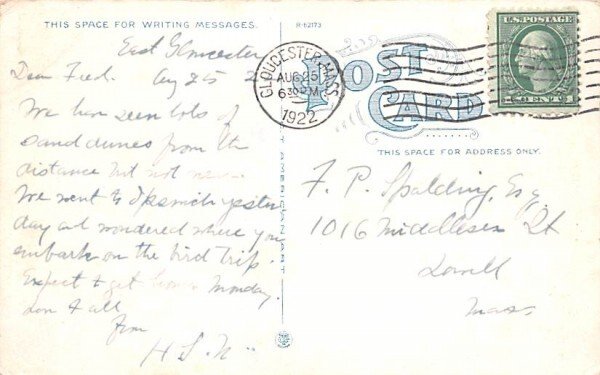 THIS SPACE FOR WRITING MESSAGES.
R-62173
East Gloucester
Aug 25
Dear Fred.
We have seen lots of
sand dunes from the
distance but not near.
We went to Ipswich yester
day and wondered where you
embark on the bird trip.
Expect to get home Monday.
Love to all
from
POST CARD
GLOUCESTER, MASS.
AUG 25
630 PM
1922
U.S. POSTAGE
1 CENT 1
THIS SPACE FOR ADDRESS ONLY.
F. P. Spalding, Esq
1016 Middlesex St
Lowell
Mass